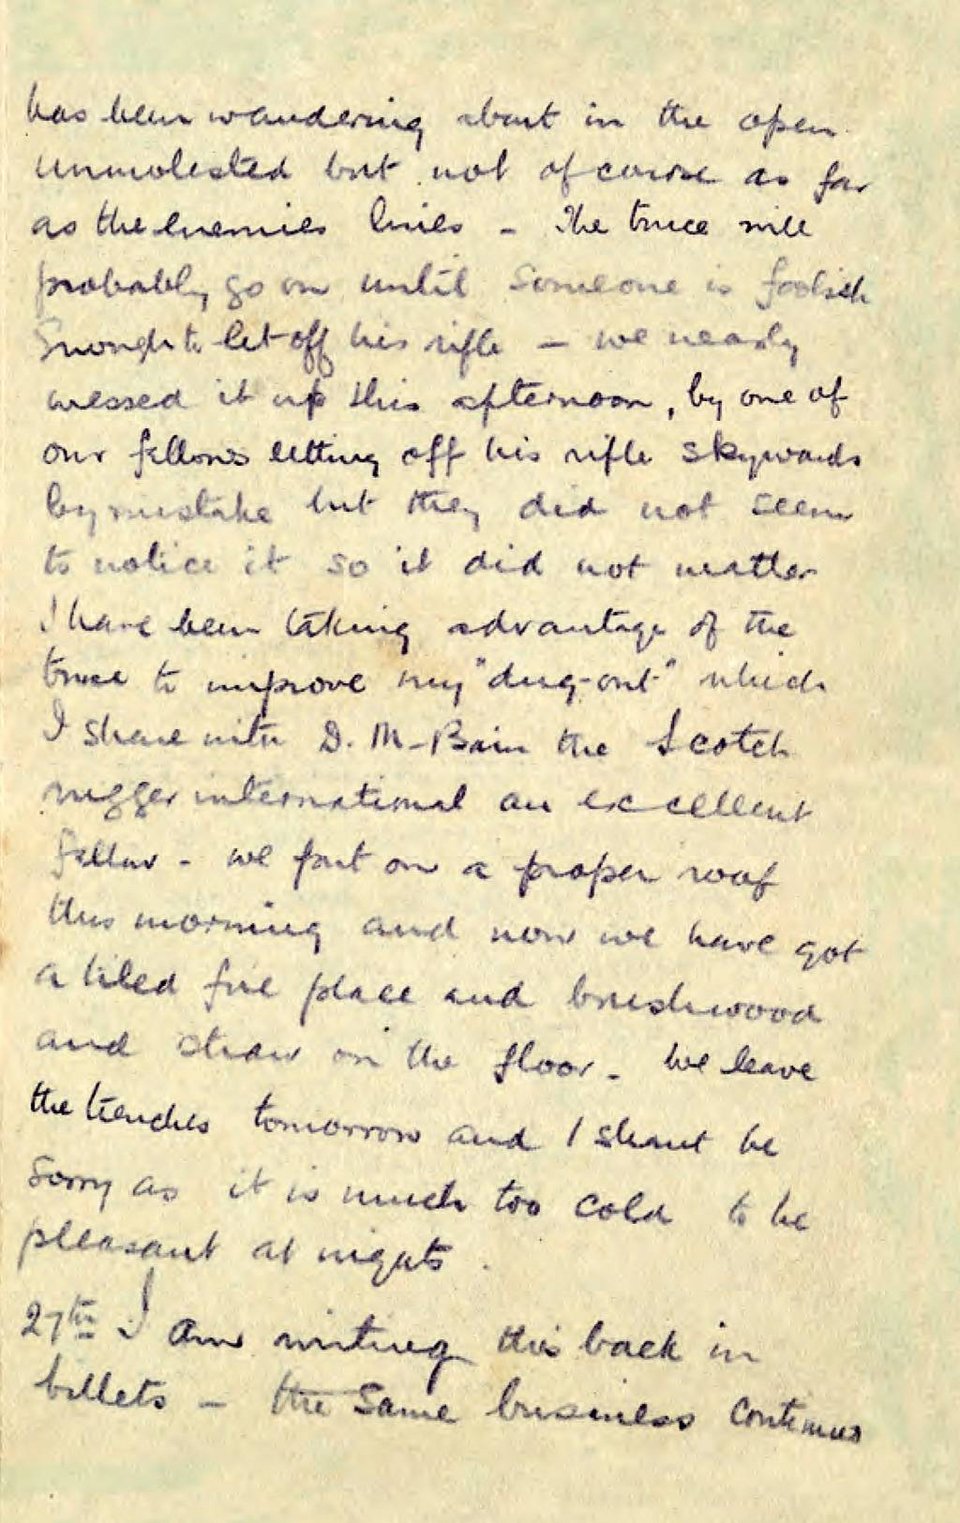 has been wandering about in the open
unmolested but not of course as far
as the enemies lines - The truce will
probably go on until someone is foolish
enough to let off his rifle - we nearly
messed it up this afternoon, by one of
our fellows letting off his rifle skywards
by mistake but they did not seem
to notice it so it did not matter
I have been taking advantage of the
truce to improve my "dug-out" which
I share with D. M. Bain the Scotch
rugger international an excellent
fellow - we put on a proper roof
this morning and now we have got
a tiled fire place and brushwood
and straw on the floor - We leave
the trenches tomorrow and I shant be
sorry as it is much too cold to be
pleasant at nights.
27th I am writing this back in
billets - the same business continues